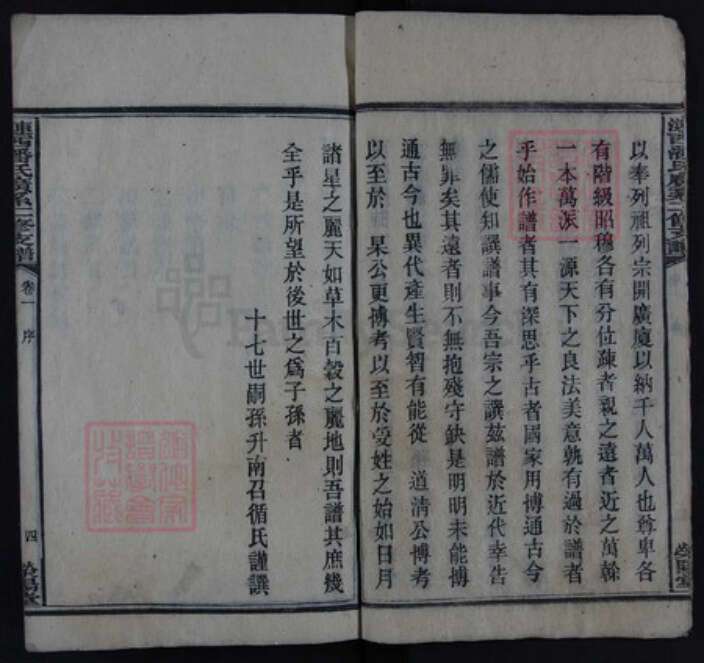 以奉列祖列宗開廣廈以納千人萬人也尊卑各
有階級昭穆各有分位疎者親之遠者近之萬榦
一本萬派一源天下之良法美意孰有過於譜者
乎始作譜者其有深思乎古者國家用博通古今
之儒使知譔譜事今吾宗之譔茲譜於近代幸告
無罪矣其遠者則不無抱殘守缺是明明未能博
通古今也異代產生賢智有能從 道清公博考
以至於 杲公更博考以至於受姓之始如日月
漣西潘氏廣系二修支譜
卷一 序
四
諸星之麗天如草木百穀之麗地則吾譜其庶幾
全乎是所望於後世之爲子孫者
十七世嗣孫升南召循氏謹譔